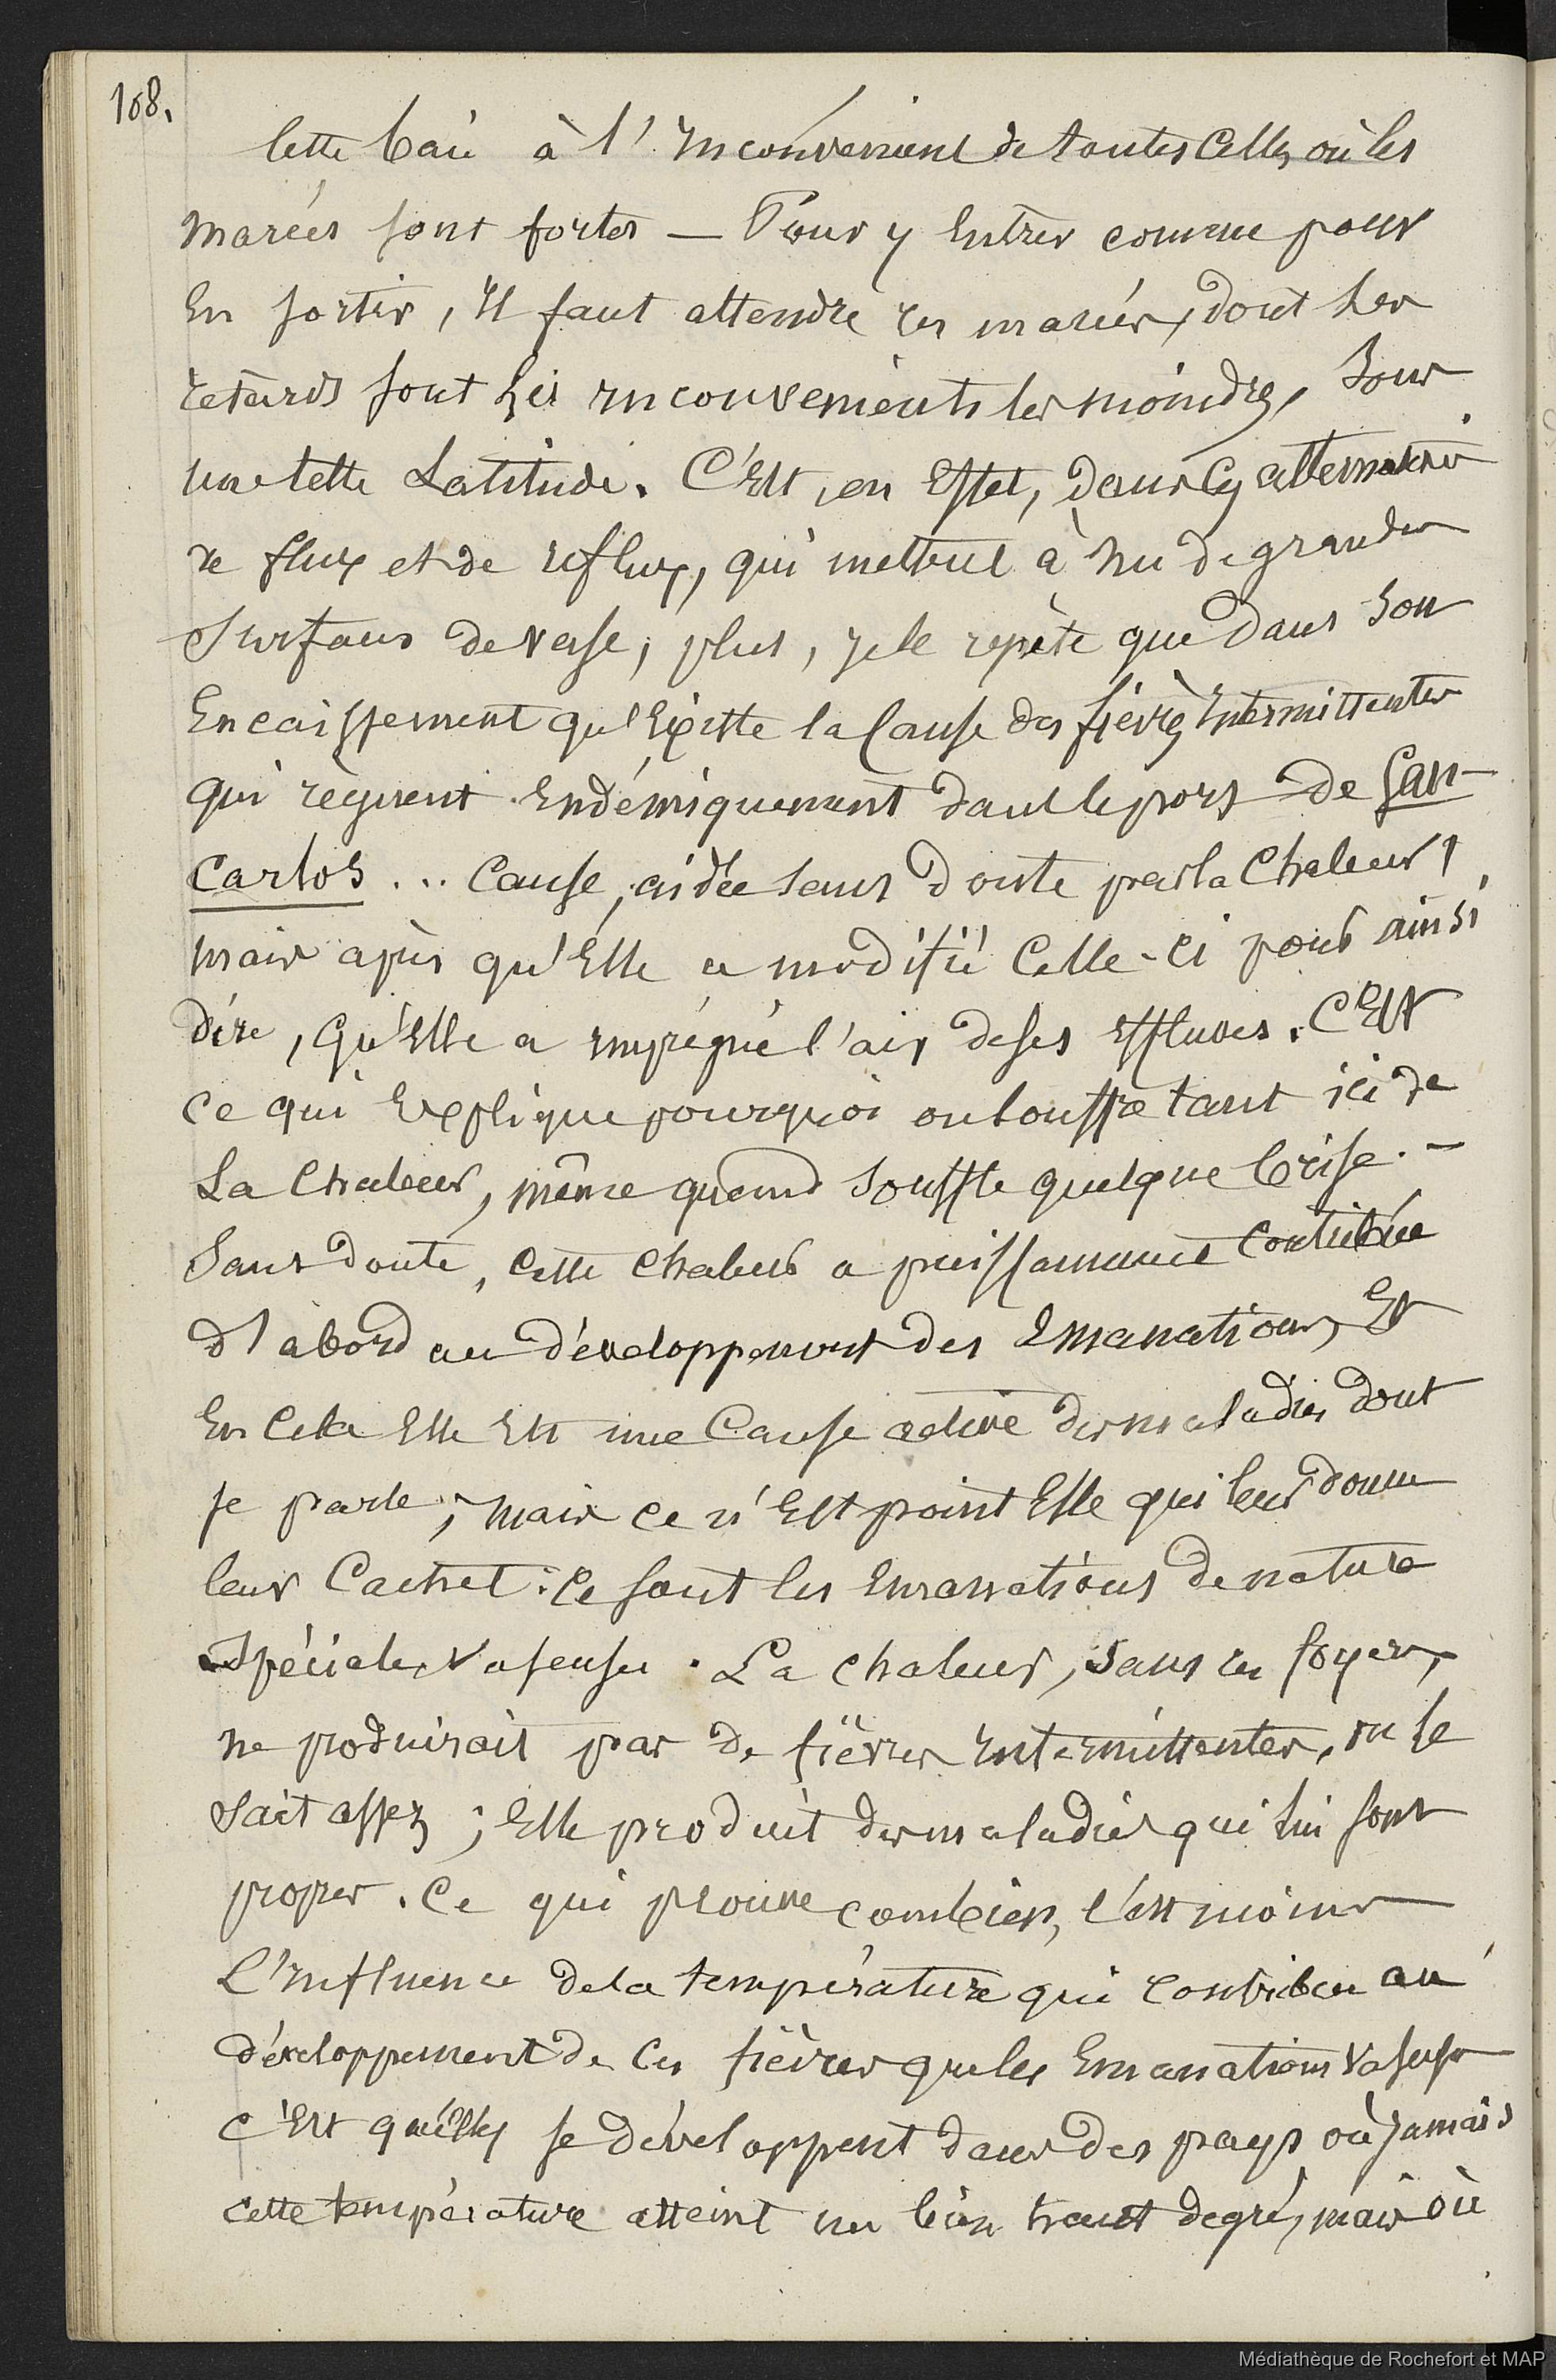 108.
Cette baie à l'inconvenient de toutes celles où les
marées sont fortes — Pour y entrer comme pour
en sortir, il faut attendre ces marées, dont les
retards sont les inconvenients les moindres, sous
une telle Latitude. C'est, en effet, dans ces alternatives
de flux et de reflux, qui mettent à nu de grandes
surfaces de vase, plus, je le repète que dans son
encaissement qu'existe la cause des fièvres intermittentes
qui règnent endémiquement dans le port de San-
Carlos... Cause, aidée sans doute par la chaleur,
mais après qu'elle a modifié celle-ci pour ainsi
dire, qu'elle a imprégné l'air de ses effluves. C'est
ce qui explique pourquoi on souffre tant ici de
la chaleur, même quand souffle quelque brise. —
Sans doute, cette chaleur a puissamment contribuée
d'abord au développement des émanations, et
en cela elle est une cause active des maladies dont
je parle; mais ce n'est point elle qui leur donne
leur cachet: ce sont les émanations de nature
spéciale, vaseuses. La chaleur, sans ces foyers,
ne produirait pas de fièvres intermittentes, on le
sait assez; elle produit des maladies qui lui sont
propres. Ce qui prouve combien, c'est moins
l'influence de la température qui contribue au
développement de ces fièvres que les émanations vaseuses
c'est qu'elles se développent dans des pays où jamais
cette température atteint un bien haut degré, mais où
Médiathèque de Rochefort et MAP